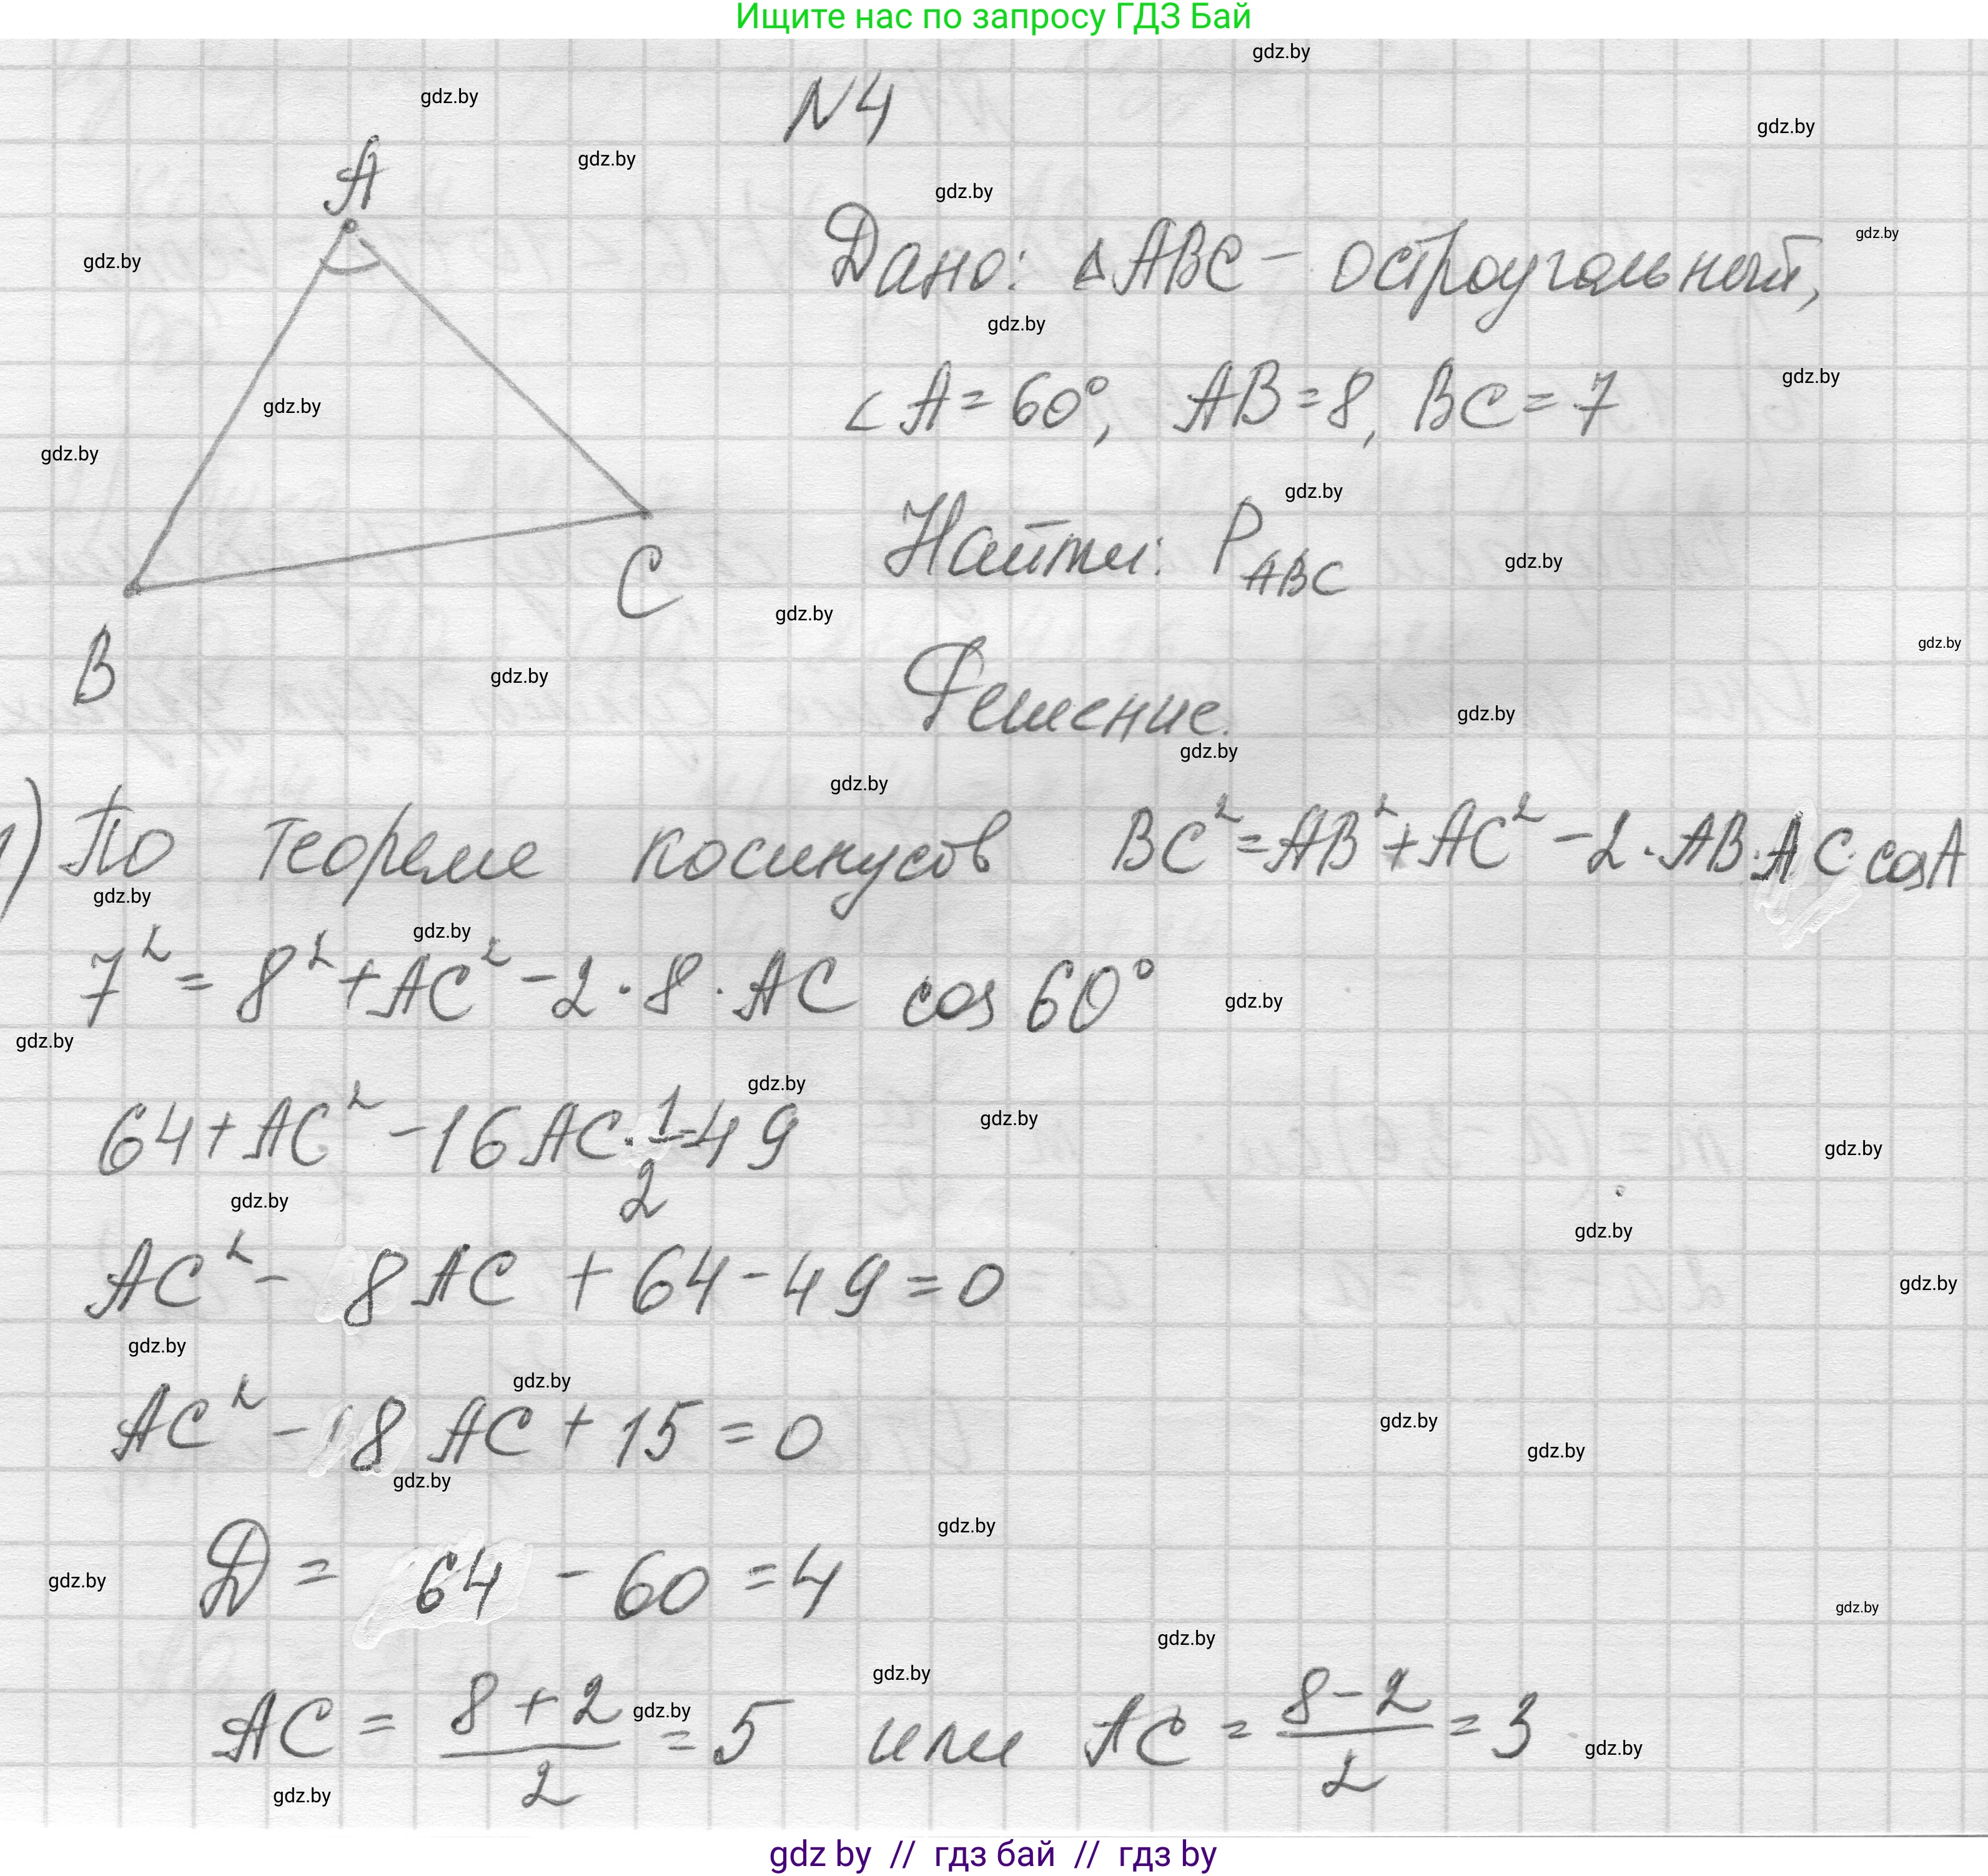 Ищите нас по запросу ГДЗ Бай
N4
A
B
C
Дано: △ABC – остроугольный,
∠A = 60°, AB = 8, BC = 7
Найти: P_ABC
Решение.
1) По теореме косинусов BC² = AB² + AC² – 2 · AB · AC · cosA
7² = 8² + AC² – 2 · 8 · AC cos 60°
64 + AC² – 16 AC · 1/2 = 49
AC² – 8 AC + 64 – 49 = 0
AC² – 8 AC + 15 = 0
D = 64 – 60 = 4
AC = (8 + 2)/2 = 5 или AC = (8 – 2)/2 = 3
gdz by // гдз бай // гдз by